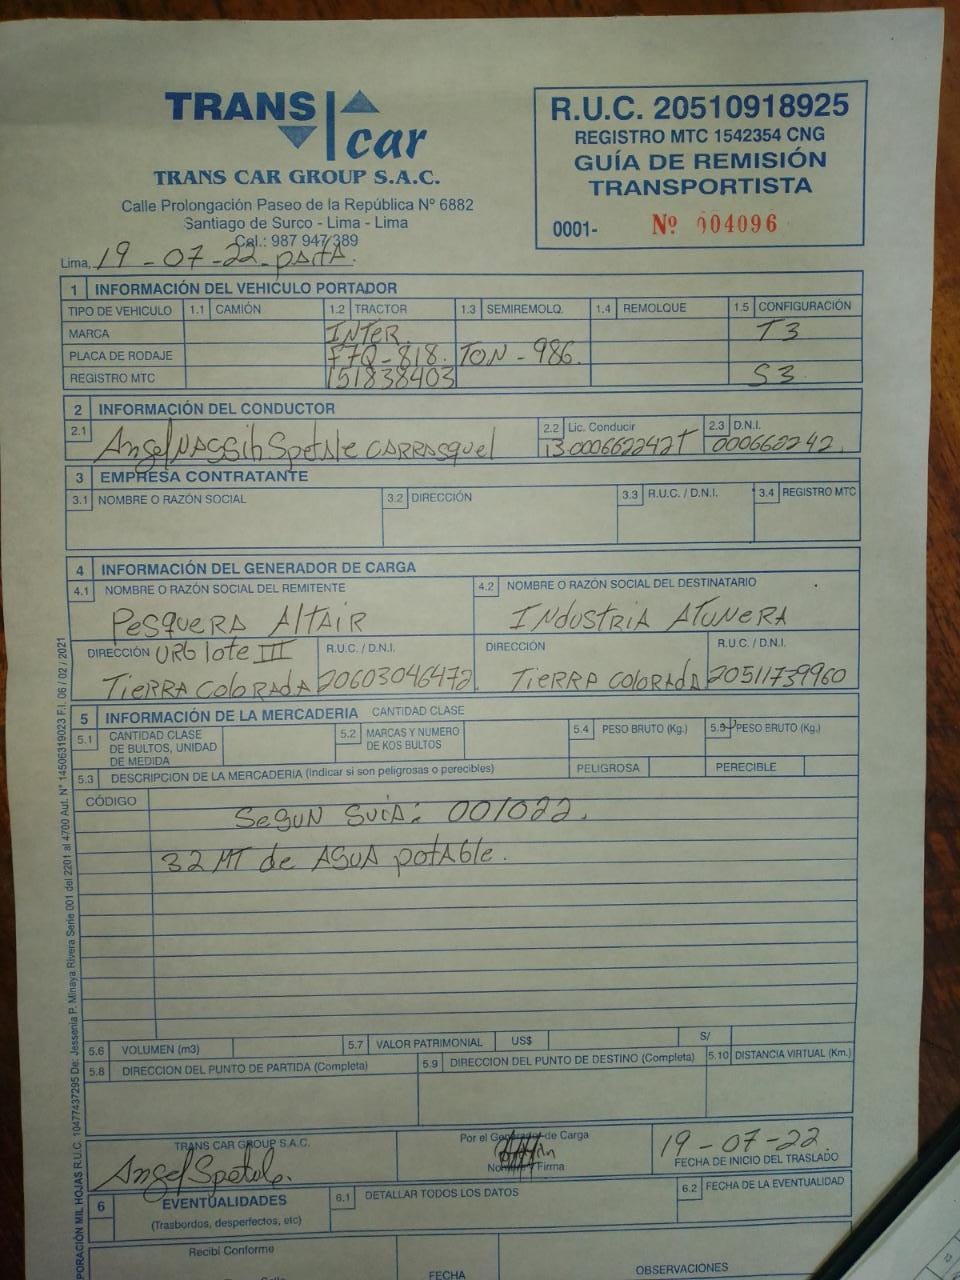 TRANS car
TRANS CAR GROUP S.A.C.
Calle Prolongación Paseo de la República Nº 6882
Santiago de Surco - Lima - Lima
Cel.: 987 947 389
R.U.C. 20510918925
REGISTRO MTC 1542354 CNG
GUÍA DE REMISIÓN
TRANSPORTISTA
0001- Nº 004096
Lima, 19-07-22-paita.
1 INFORMACIÓN DEL VEHICULO PORTADOR
TIPO DE VEHICULO 1.1 CAMIÓN 1.2 TRACTOR 1.3 SEMIREMOLQ. 1.4 REMOLQUE 1.5 CONFIGURACIÓN
MARCA INTER T3
PLACA DE RODAJE F7Q-818. TON-986.
REGISTRO MTC 151838403 S3
2 INFORMACIÓN DEL CONDUCTOR
2.1 Angel NASSih Spetale CARRASquel 2.2 Lic. Conducir 2.3 D.N.I.
000662242.
3 EMPRESA CONTRATANTE
3.1 NOMBRE O RAZÓN SOCIAL 3.2 DIRECCIÓN 3.3 R.U.C. / D.N.I. 3.4 REGISTRO MTC
4 INFORMACIÓN DEL GENERADOR DE CARGA
4.1 NOMBRE O RAZÓN SOCIAL DEL REMITENTE 4.2 NOMBRE O RAZÓN SOCIAL DEL DESTINATARIO
PESQUERA ALTAIR INdustRiA ATUNERA
DIRECCIÓN URb lote III R.U.C. / D.N.I. DIRECCIÓN R.U.C. / D.N.I.
TiERRA ColoRADA 20603046472 TIERRA ColoRAdA 20511739960
5 INFORMACIÓN DE LA MERCADERIA CANTIDAD CLASE
5.1 CANTIDAD CLASE DE BULTOS, UNIDAD DE MEDIDA 5.2 MARCAS Y NUMERO DE KOS BULTOS 5.4 PESO BRUTO (Kg.) PESO BRUTO (Kg.)
5.3 DESCRIPCION DE LA MERCADERIA (Indicar si son peligrosas o perecibles) PELIGROSA PERECIBLE
CÓDIGO
SegUN guiA: 001022.
32 MT de AGUA potAble.
5.6 VOLUMEN (m3) 5.7 VALOR PATRIMONIAL US$ S/
5.8 DIRECCION DEL PUNTO DE PARTIDA (Completa) 5.9 DIRECCION DEL PUNTO DE DESTINO (Completa) 5.10 DISTANCIA VIRTUAL (Km.)
TRANS CAR GROUP S.A.C. Por el Generador de Carga 19-07-22.
Angel Spetale Nombre y Firma FECHA DE INICIO DEL TRASLADO
6 EVENTUALIDADES 6.1 DETALLAR TODOS LOS DATOS 6.2 FECHA DE LA EVENTUALIDAD
(Trasbordos, desperfectos, etc)
Recibí Conforme FECHA OBSERVACIONES
PORACIÓN MIL HOJAS R.U.C. 10477437295 De: Jessenia P. Minaya Rivera Serie 001 del 2201 al 4700 Aut. Nº 14506319023 F.I. 06 / 02 / 2021